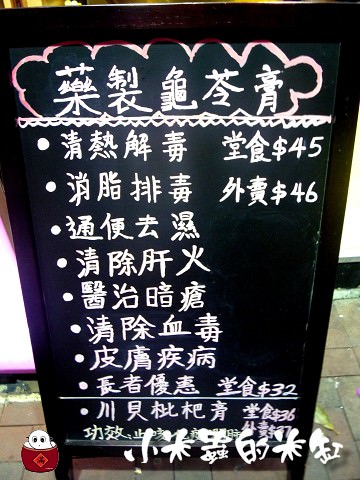 藥製龜苓膏
• 清熱解毒 堂食$45
• 消脂排毒 外賣$46
• 通便去濕
• 清除肝火
• 醫治暗瘡
• 清除血毒
• 皮膚疾病
• 長者優惠 堂食$32
• 川貝枇杷膏 堂食$36
外賣$37
功效:止咳
小米蟲的米缸